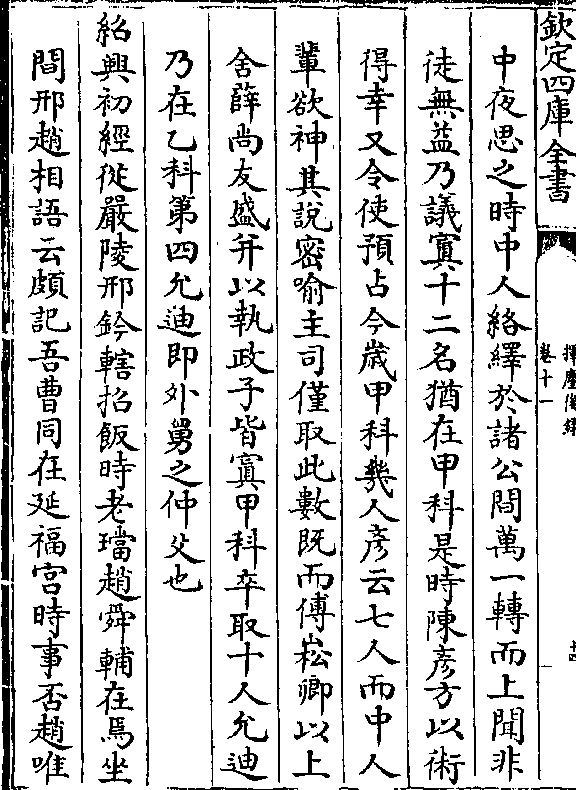 欽定四庫全書
揮麈後録
卷十一
中夜思之時中人絡繹於諸公間萬一轉而上聞非
徒無益乃議寘十二名猶在甲科是時陳彦方以術
得幸又令使預占今歲甲科幾人彦云七人而中人
輩欲神其説密喻主司僅取此數既而傅崧卿以上
舍薛尚友盛并以執政子皆寘甲科卒取十人允迪
乃在乙科第四允迪即外舅之仲父也
紹興初經從嚴陵邢鈐轄招飯時老璫趙舜輔在焉坐
間邢趙相語云頗記吾曹同在延福宫時事否趙唯